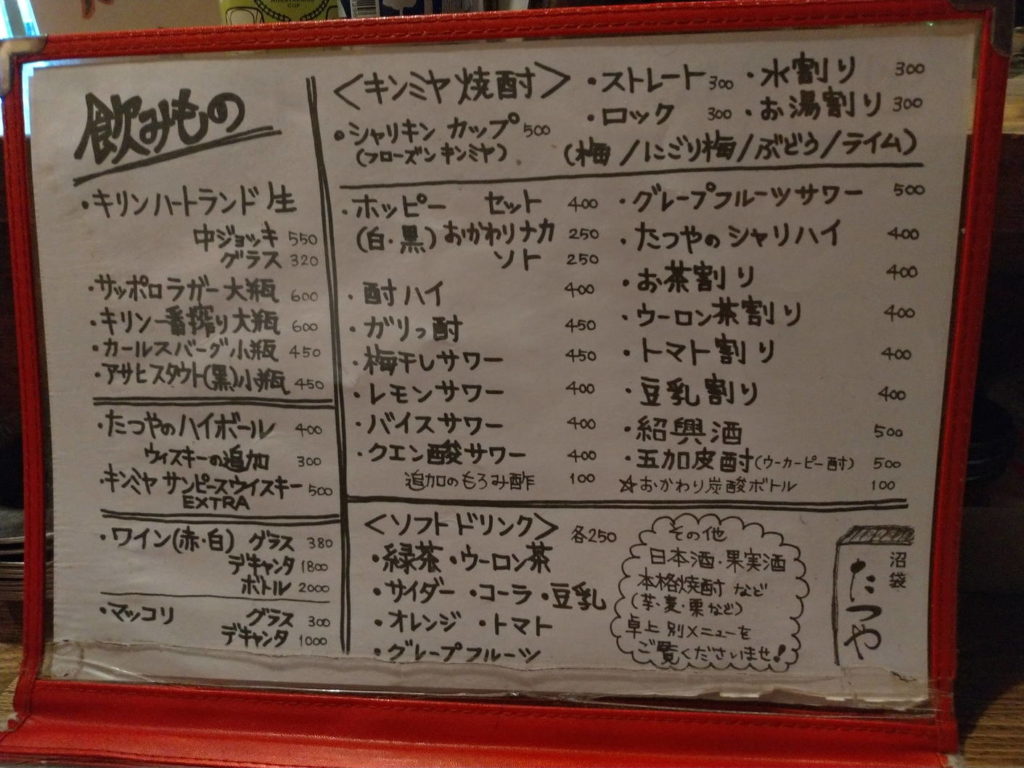 飲みもの
・キリンハートランド 生
中ジョッキ 550
グラス 320
・サッポロラガー大瓶 600
・キリン一番搾り大瓶 600
・カールスバーグ小瓶 450
・アサヒスタウト(黒)小瓶 450
・たつやのハイボール 400
ウィスキーの追加 300
キンミヤ サンピースウイスキー 500
EXTRA
・ワイン(赤・白) グラス 380
デキャンタ 1800
ボトル 2000
・マッコリ グラス 300
デキャンタ 1000
<キンミヤ焼酎>
・シャリキン カップ 500
(フローズンキンミヤ)
・ストレート 300 ・水割り 300
・ロック 300 ・お湯割り 300
(梅/にごり梅/ぶどう/ライム)
・ホッピー セット 400
(白・黒) おかわりナカ 250
ソト 250
・酎ハイ 400
・ガリっ酎 450
・梅干しサワー 450
・レモンサワー 400
・バイスサワー 400
・クエン酸サワー 400
追加のもろみ酢 100
・グレープフルーツサワー 500
・たつやのシャリハイ 400
・お茶割り 400
・ウーロン茶割り 400
・トマト割り 400
・豆乳割り 400
・紹興酒 500
・五加皮酎(ウーカーピー酎) 500
☆おかわり炭酸ボトル 100
<ソフトドリンク> 各250
・緑茶 ・ウーロン茶
・サイダー ・コーラ ・豆乳
・オレンジ ・トマト
・グレープフルーツ
その他
日本酒・果実酒
本格焼酎 など
(芋・麦・栗など)
卓上 別メニューを
ご覧くださいませ!
沼袋
たつや